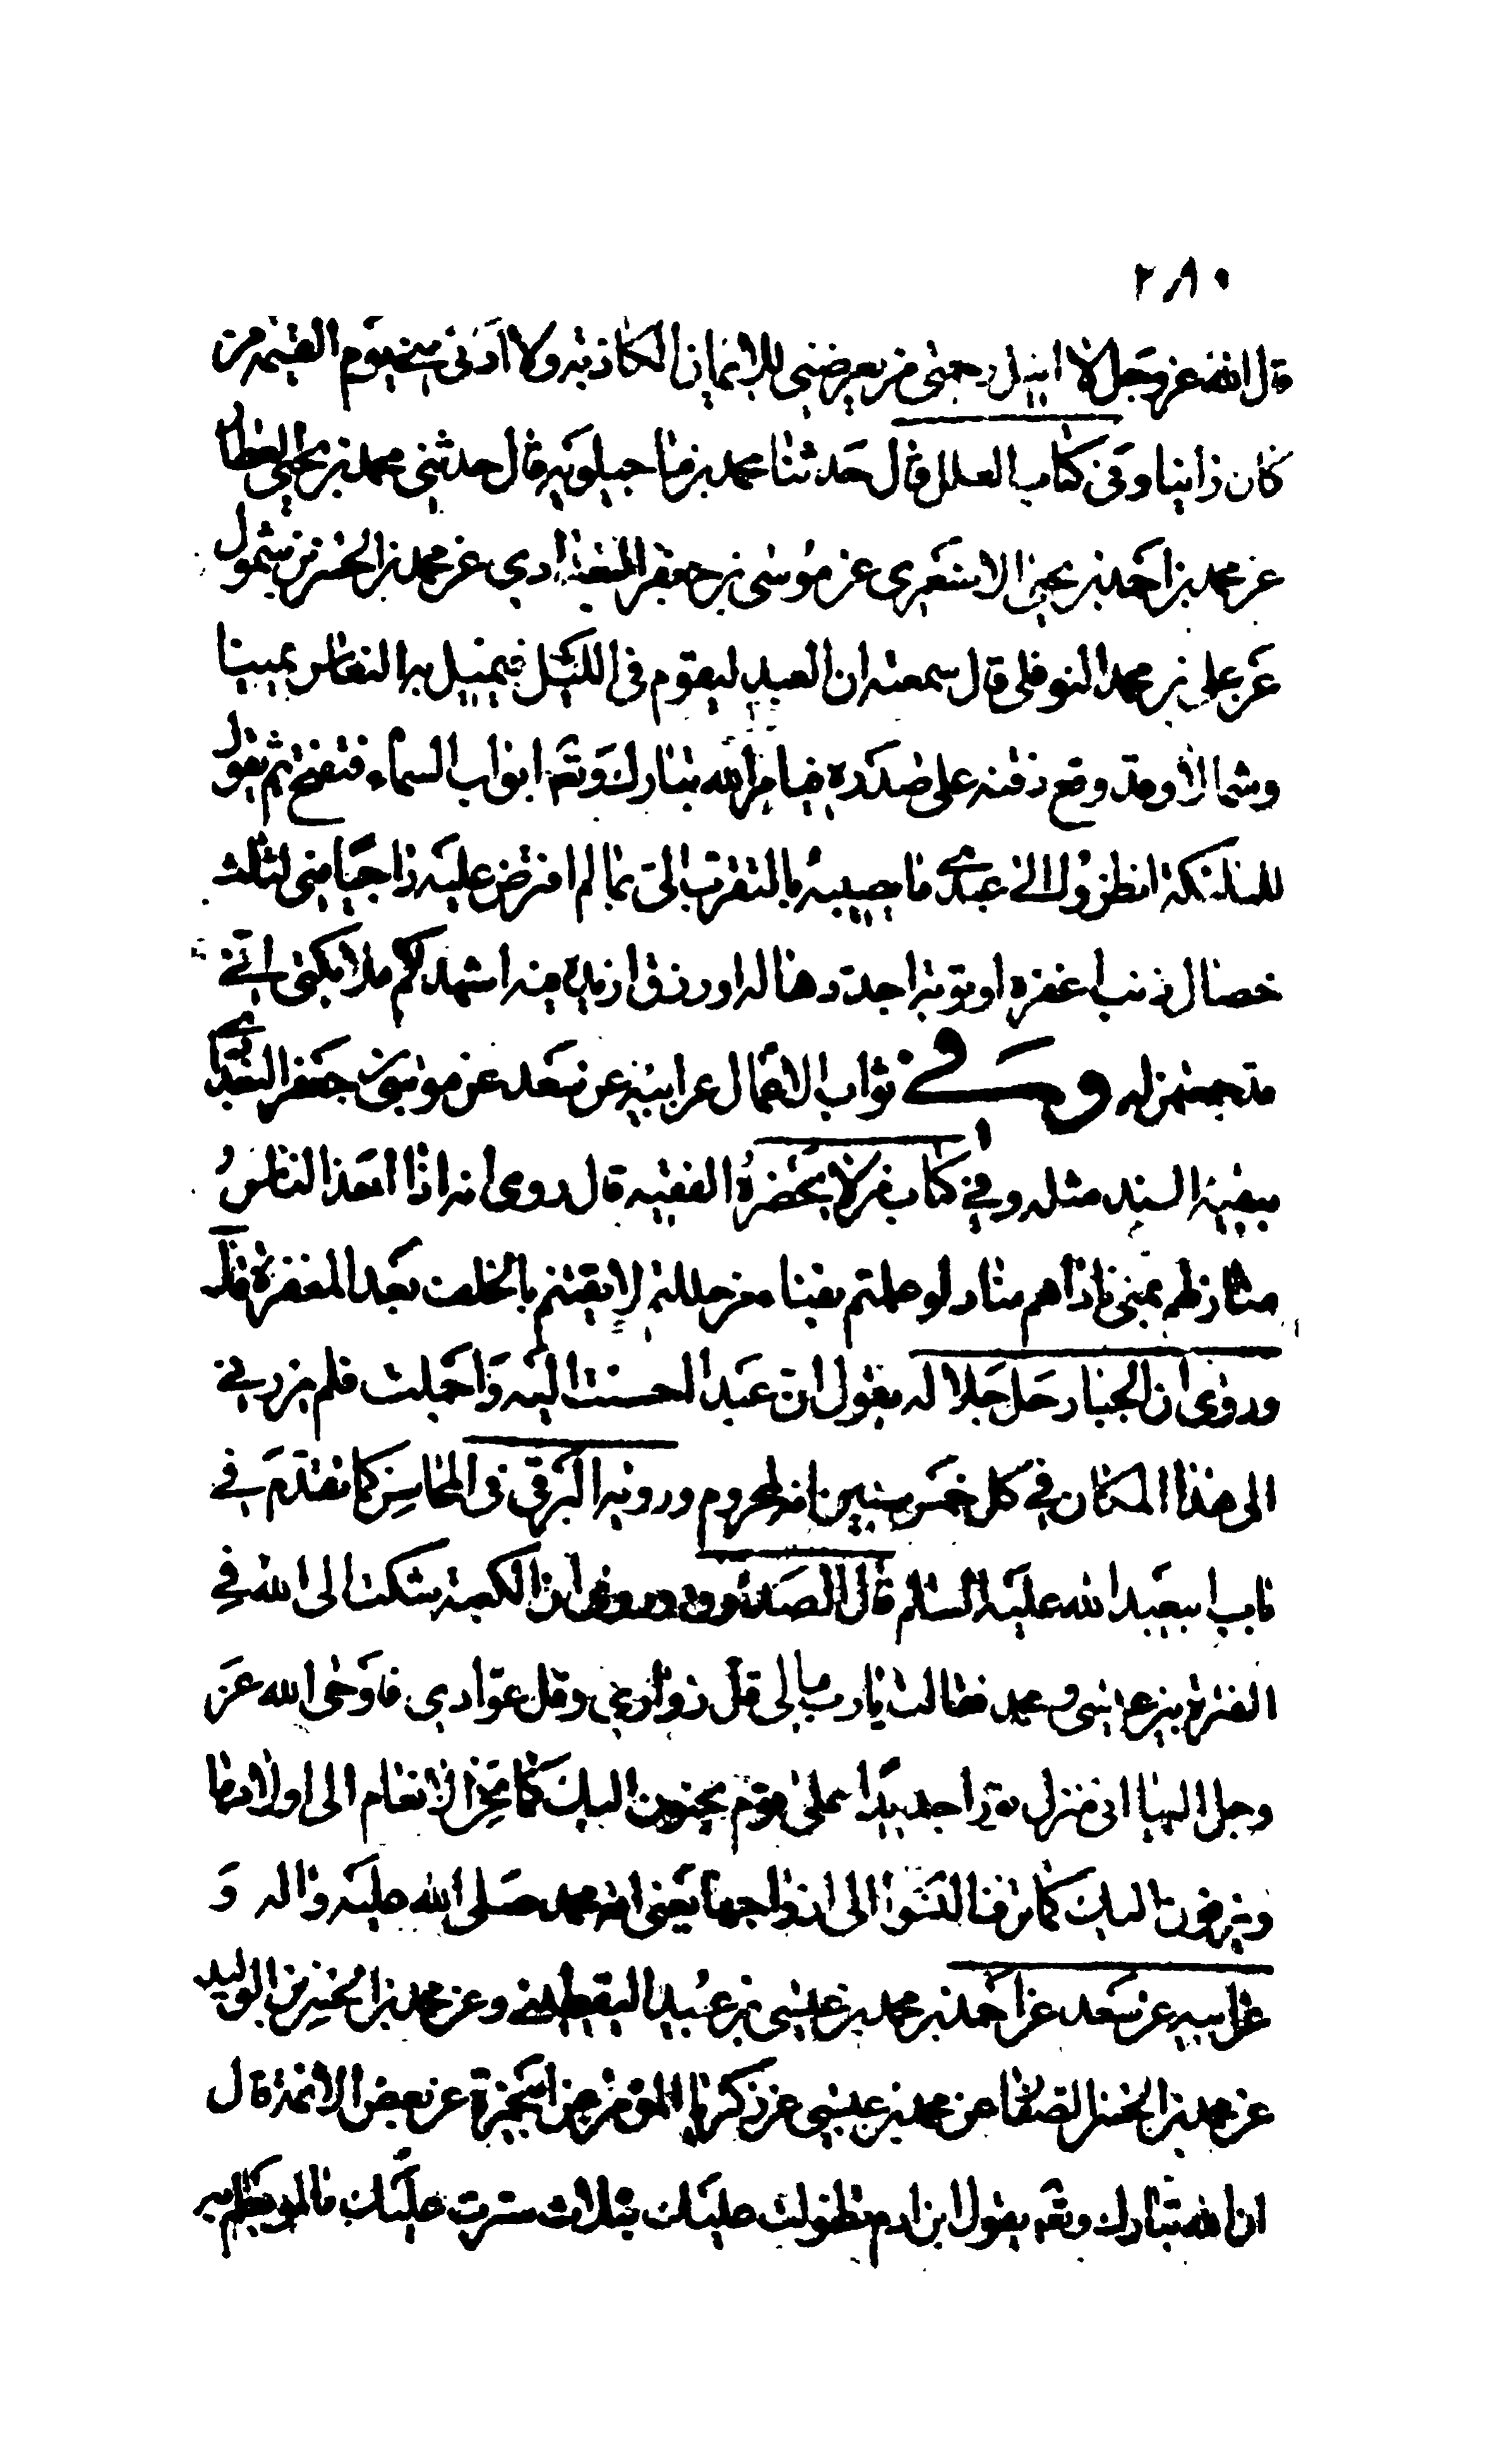 ٢٨٠
قال الله عز وجل لا انيل رحمتى من يعرضني للايمان الكاذبة ولا ادنى منى يوم القيمة من
كان زانيا وفى كتاب العلل قال حدثنا محمد بن ماجيلويه قال حدثني محمد بن يحيى العطا
عن محمد بن احمد بن يحيى الاشعرى عن موسى بن جعفر البغدادي عن محمد بن الحسن بن شمول
عن على بن محمد النوفلى قال سمعته ان العبد ليقوم فى الليل فيميل به النعاس يمينا
وشمالا وقد وقع ذقنه على صدره فيامر الله تبارك وتعه ابواب السماء فتفتح ثم يقول
للملئكة انظروا الى عبدى ما يصيبه بالتقرب الى بما لم افترض عليه راجيا منى لثلث
خصال ذنب اغفره او توبة اجددها له او رزق ازيده فيه اشهدكم ملائكتى انى
قد جمعتهن له وفي ثواب الاعمال عن ابيه عن سعد عن موسى بن جعفر البغدا
ببقية السند مثله وفي كتاب من لا يحضره الفقيه قال روى انه اذا اخذ الناس
منازلهم بمنى ناداهم مناد لو علمتم بفنا من حللتم لايقنتم بالخلف بعد المغفرة قال
وروى ان الجبار جل جلاله يقول ان عبدا احسنت اليه واجملت فلم يزرني
الى هذا المكان في كل خمس سنين انه لمحروم ورويه البرقى فى المحاسن كما تقدم في
باب ابيعبد الله عليه السلم قال الصدوق وروى ان الكعبة شكت الى الله في
الفترة بين عيسى و محمد فقالت يا رب ما لى قل زواري وقل عوادي فاوحى الله عز
وجل اليها انى منزل نورا جديدا على قوم يحنون اليك كما تحن الانعام الى اولادها
ويزفون اليك كما تزف النسوان الى ازواجها يعنى امة محمد صلى الله عليه واله و
عن ابيه عن سعد عن احمد بن محمد بن عيسى بن عبيد اليقطينى وعن محمد بن الحسن بن الوليد
عن محمد بن الحسن الصفا عن محمد بن عيسى عن زكريا المؤمن عن ابى حمزة عن بعض الائمة قال
ان الله تبارك وتعه يقول ابن ادم تطولت عليك بثلاث سترت عليك ما لو يعلم به